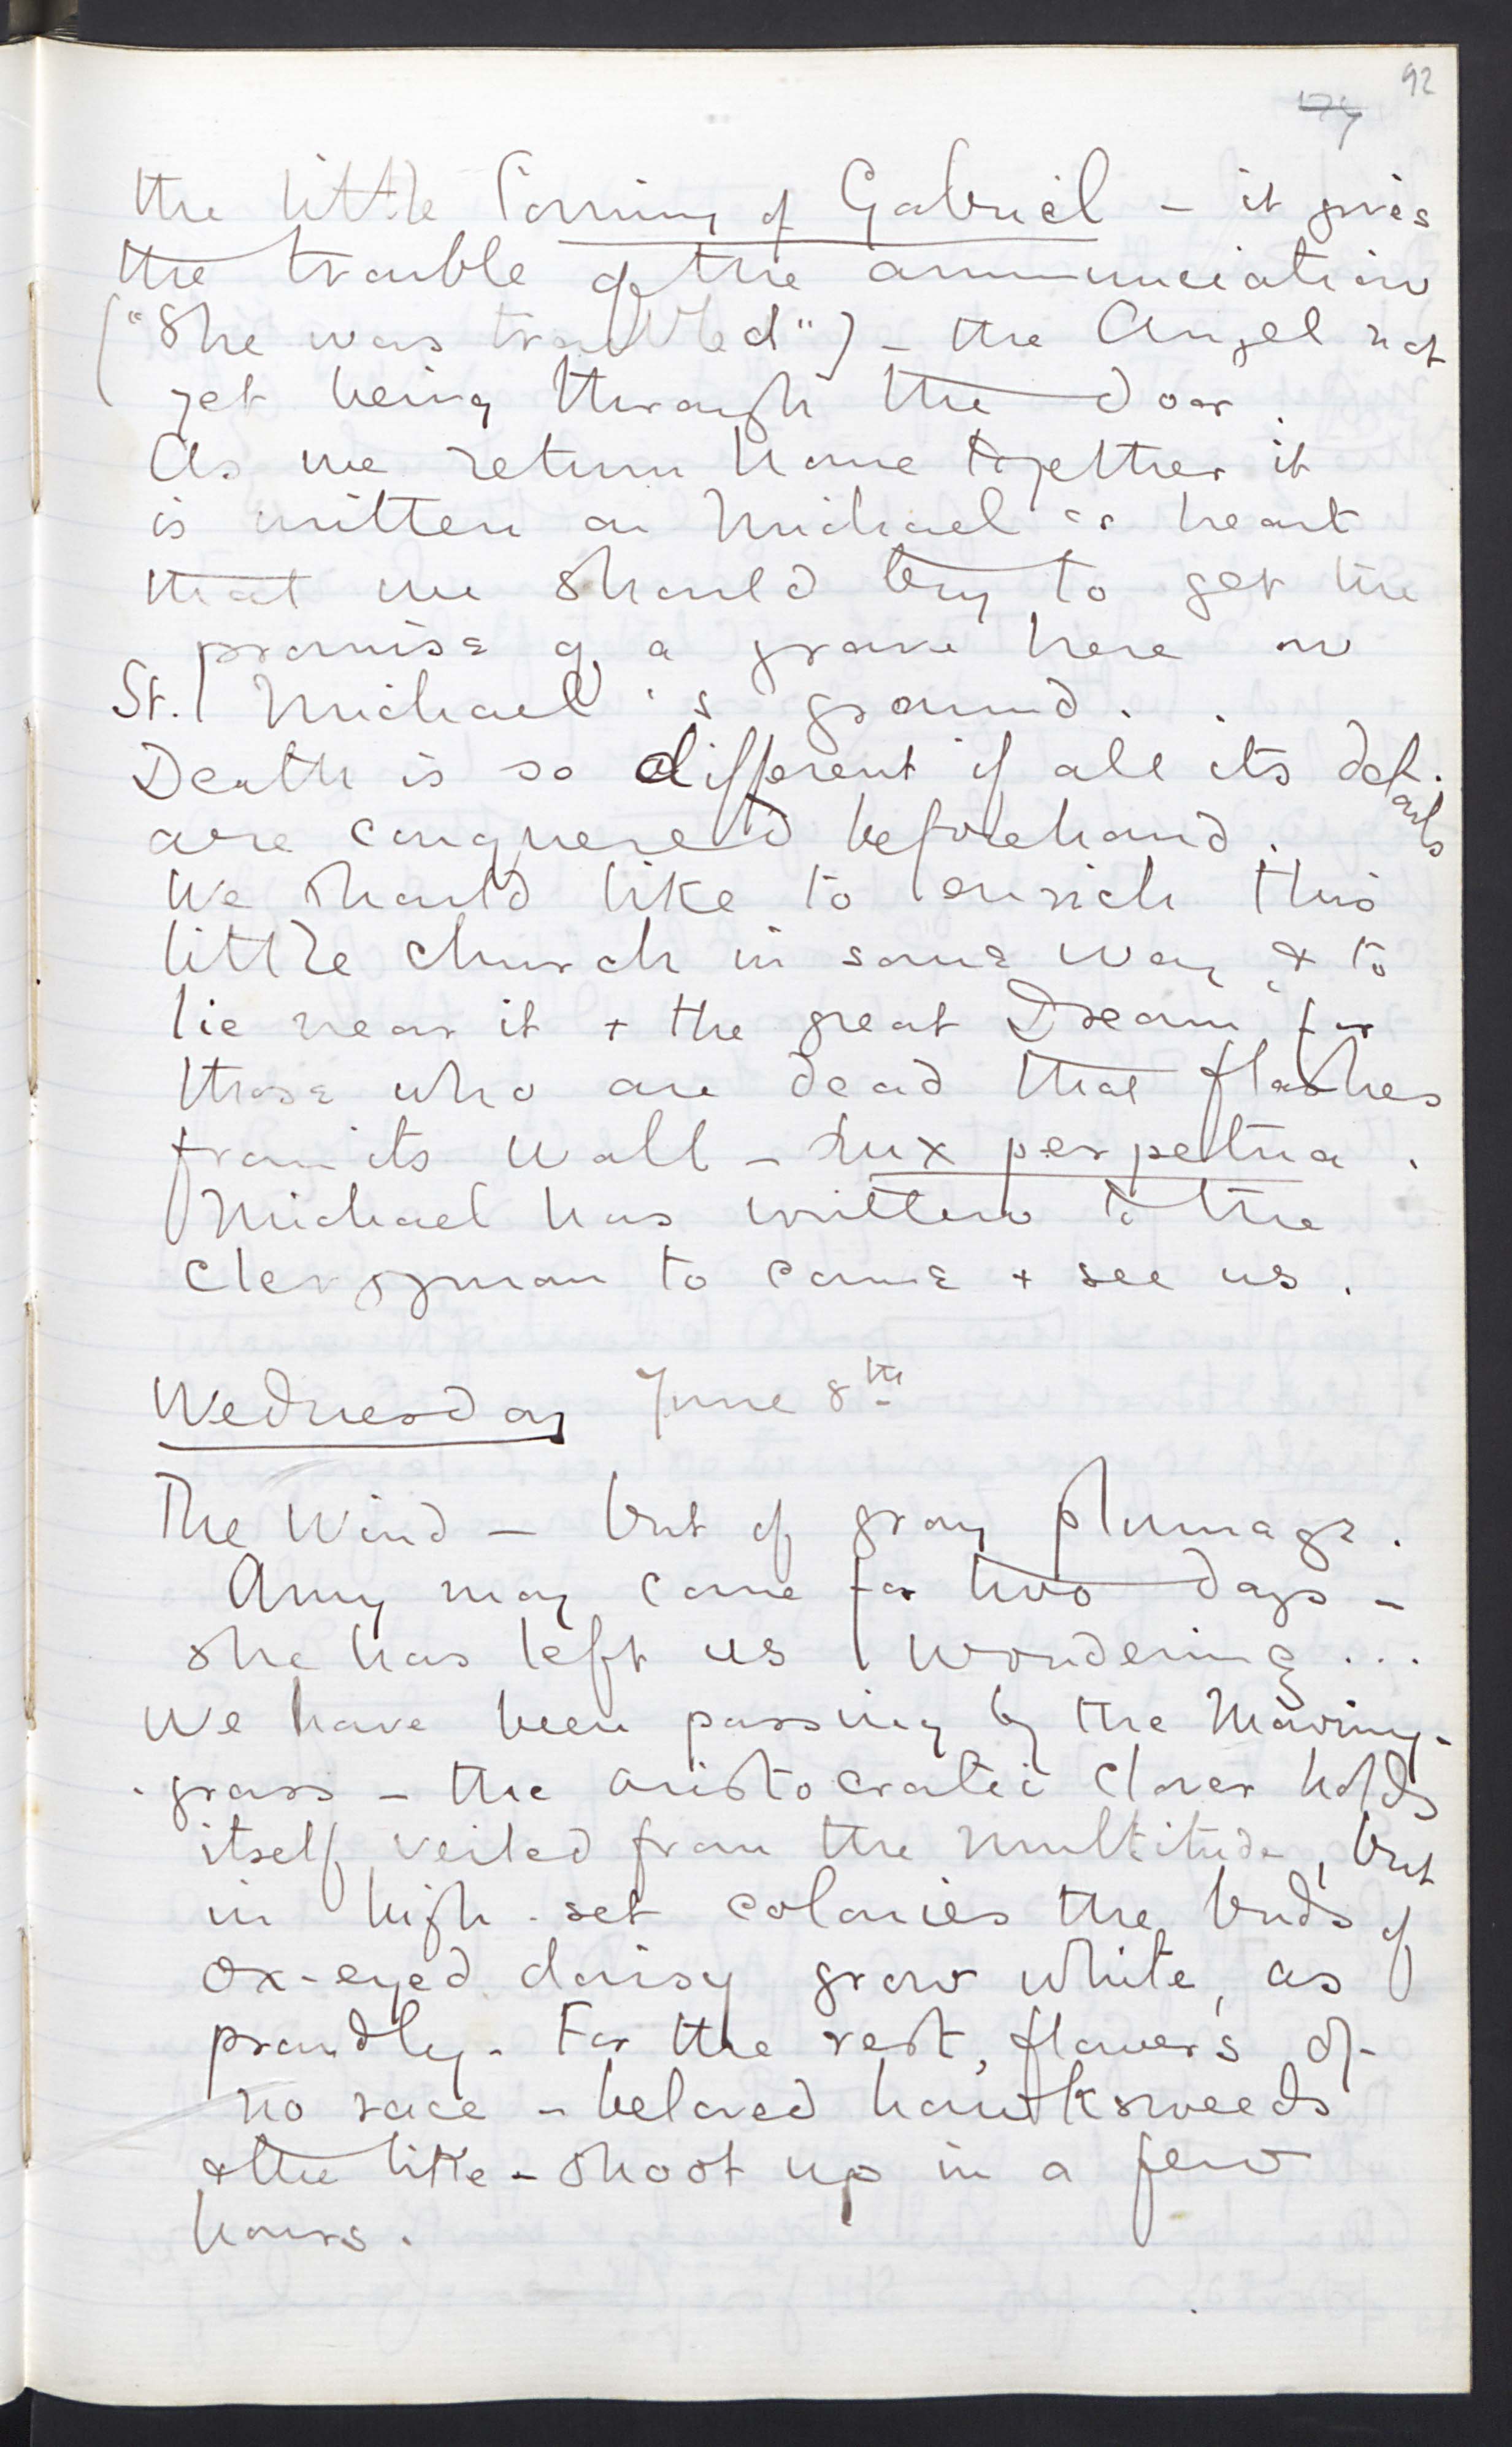 92
the little Coming of Gabriel – it gives
the trouble of the annunciation
("She was troubled") – the Angel not
yet being through the door.
As we return home together it
is written on Michael's heart
that we should try to get the
promise of a grave here in
St. Michael's ground.
Death is so different if all its det-
ails
are conquered beforehand.
We should like to enrich this
little church in some way & to
lie near it + the great Dream for
those who are dead that flashes
from its wall – Lux perpetua.
Michael has written to the
clergyman to come + see us.
Wednesday June 8th
The Wind – but of gray plumage.
Amy may come for two days –
She has left us wondering ...
We have been passing by the Mowing-
-grass – the aristocratic clover holds
itself veiled from the multitude, but
in high-set colonies the buds of
ox-eyed daisy grow white, as
proudly. For the rest, flowers of
no race – beloved hawksweeds
& the like – shoot up in a few
hours.